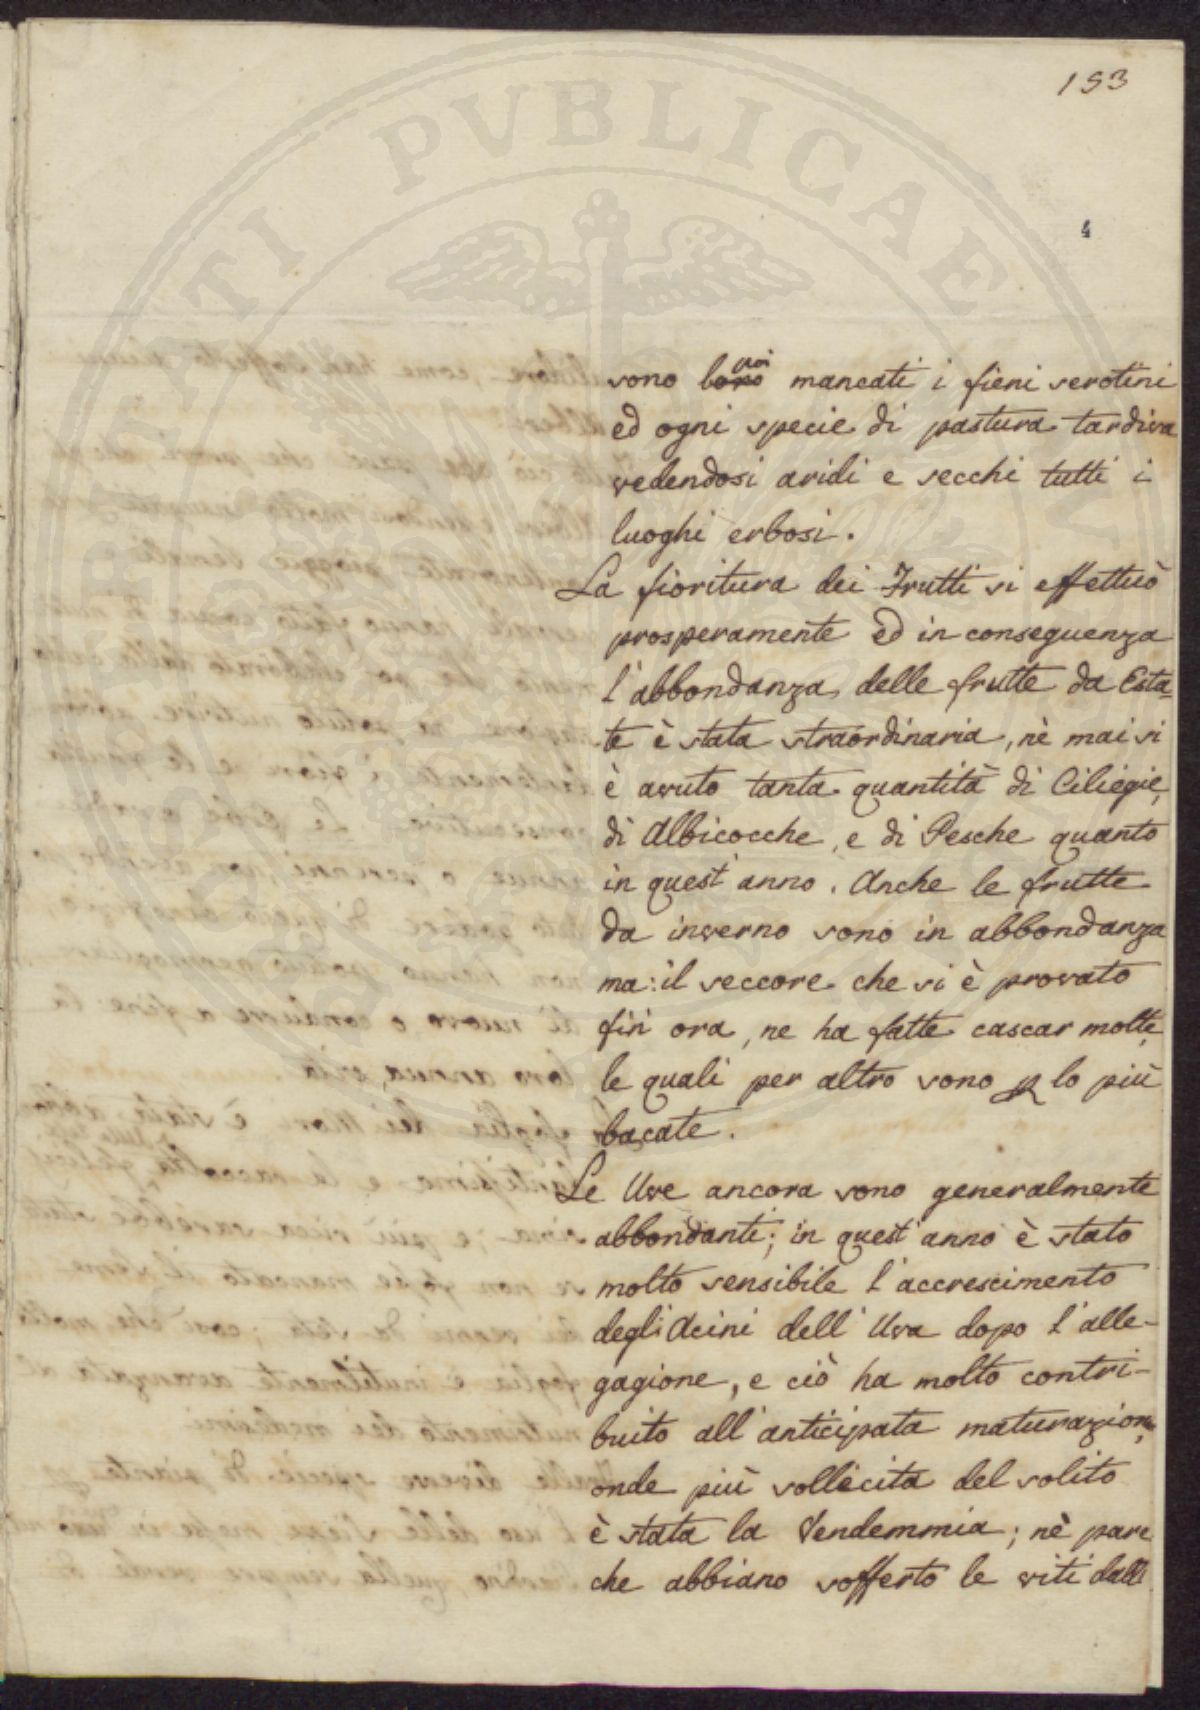 153
4
sono poi mancati i fieni serotini
ed ogni specie di pastura tardiva
vedendosi aridi e secchi tutti i
luoghi erbosi.
La fioritura dei Frutti si effettuò
prosperamente ed in conseguenza
l'abbondanza delle frutte da Esta=
te è stata straordinaria, nè mai si
è avuto tanta quantità di Ciliegie,
di Albicocche, e di Pesche quanto
in quest'anno. Anche le frutte
da inverno sono in abbondanza
ma: il seccore che si è provato
fin ora, ne ha fatte cascar molte,
le quali per altro sono p lo più
bacate.
Le Uve ancora sono generalmente
abbondanti; in quest'anno è stato
molto sensibile l'accrescimento
degli Acini dell'Uva dopo l'alle-
gagione, e ciò ha molto contri-
buito all'anticipata maturazione,
onde più sollecita del solito
è stata la Vendemmia; nè pare
che abbiano sofferto le viti dall